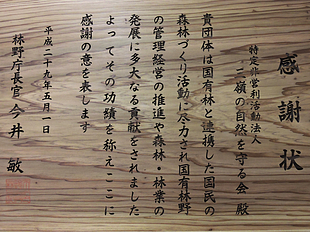 感謝状
特定非営利活動法人
二嶺の自然を守る会 殿
貴団体は国有林と連携した国民の
森林づくり活動に尽力され国有林野
の管理経営の推進や森林・林業の
発展に多大なる貢献をされました
よってその功績を称えここに
感謝の意を表します
平成二十九年五月一日
林野庁長官 今井 敏